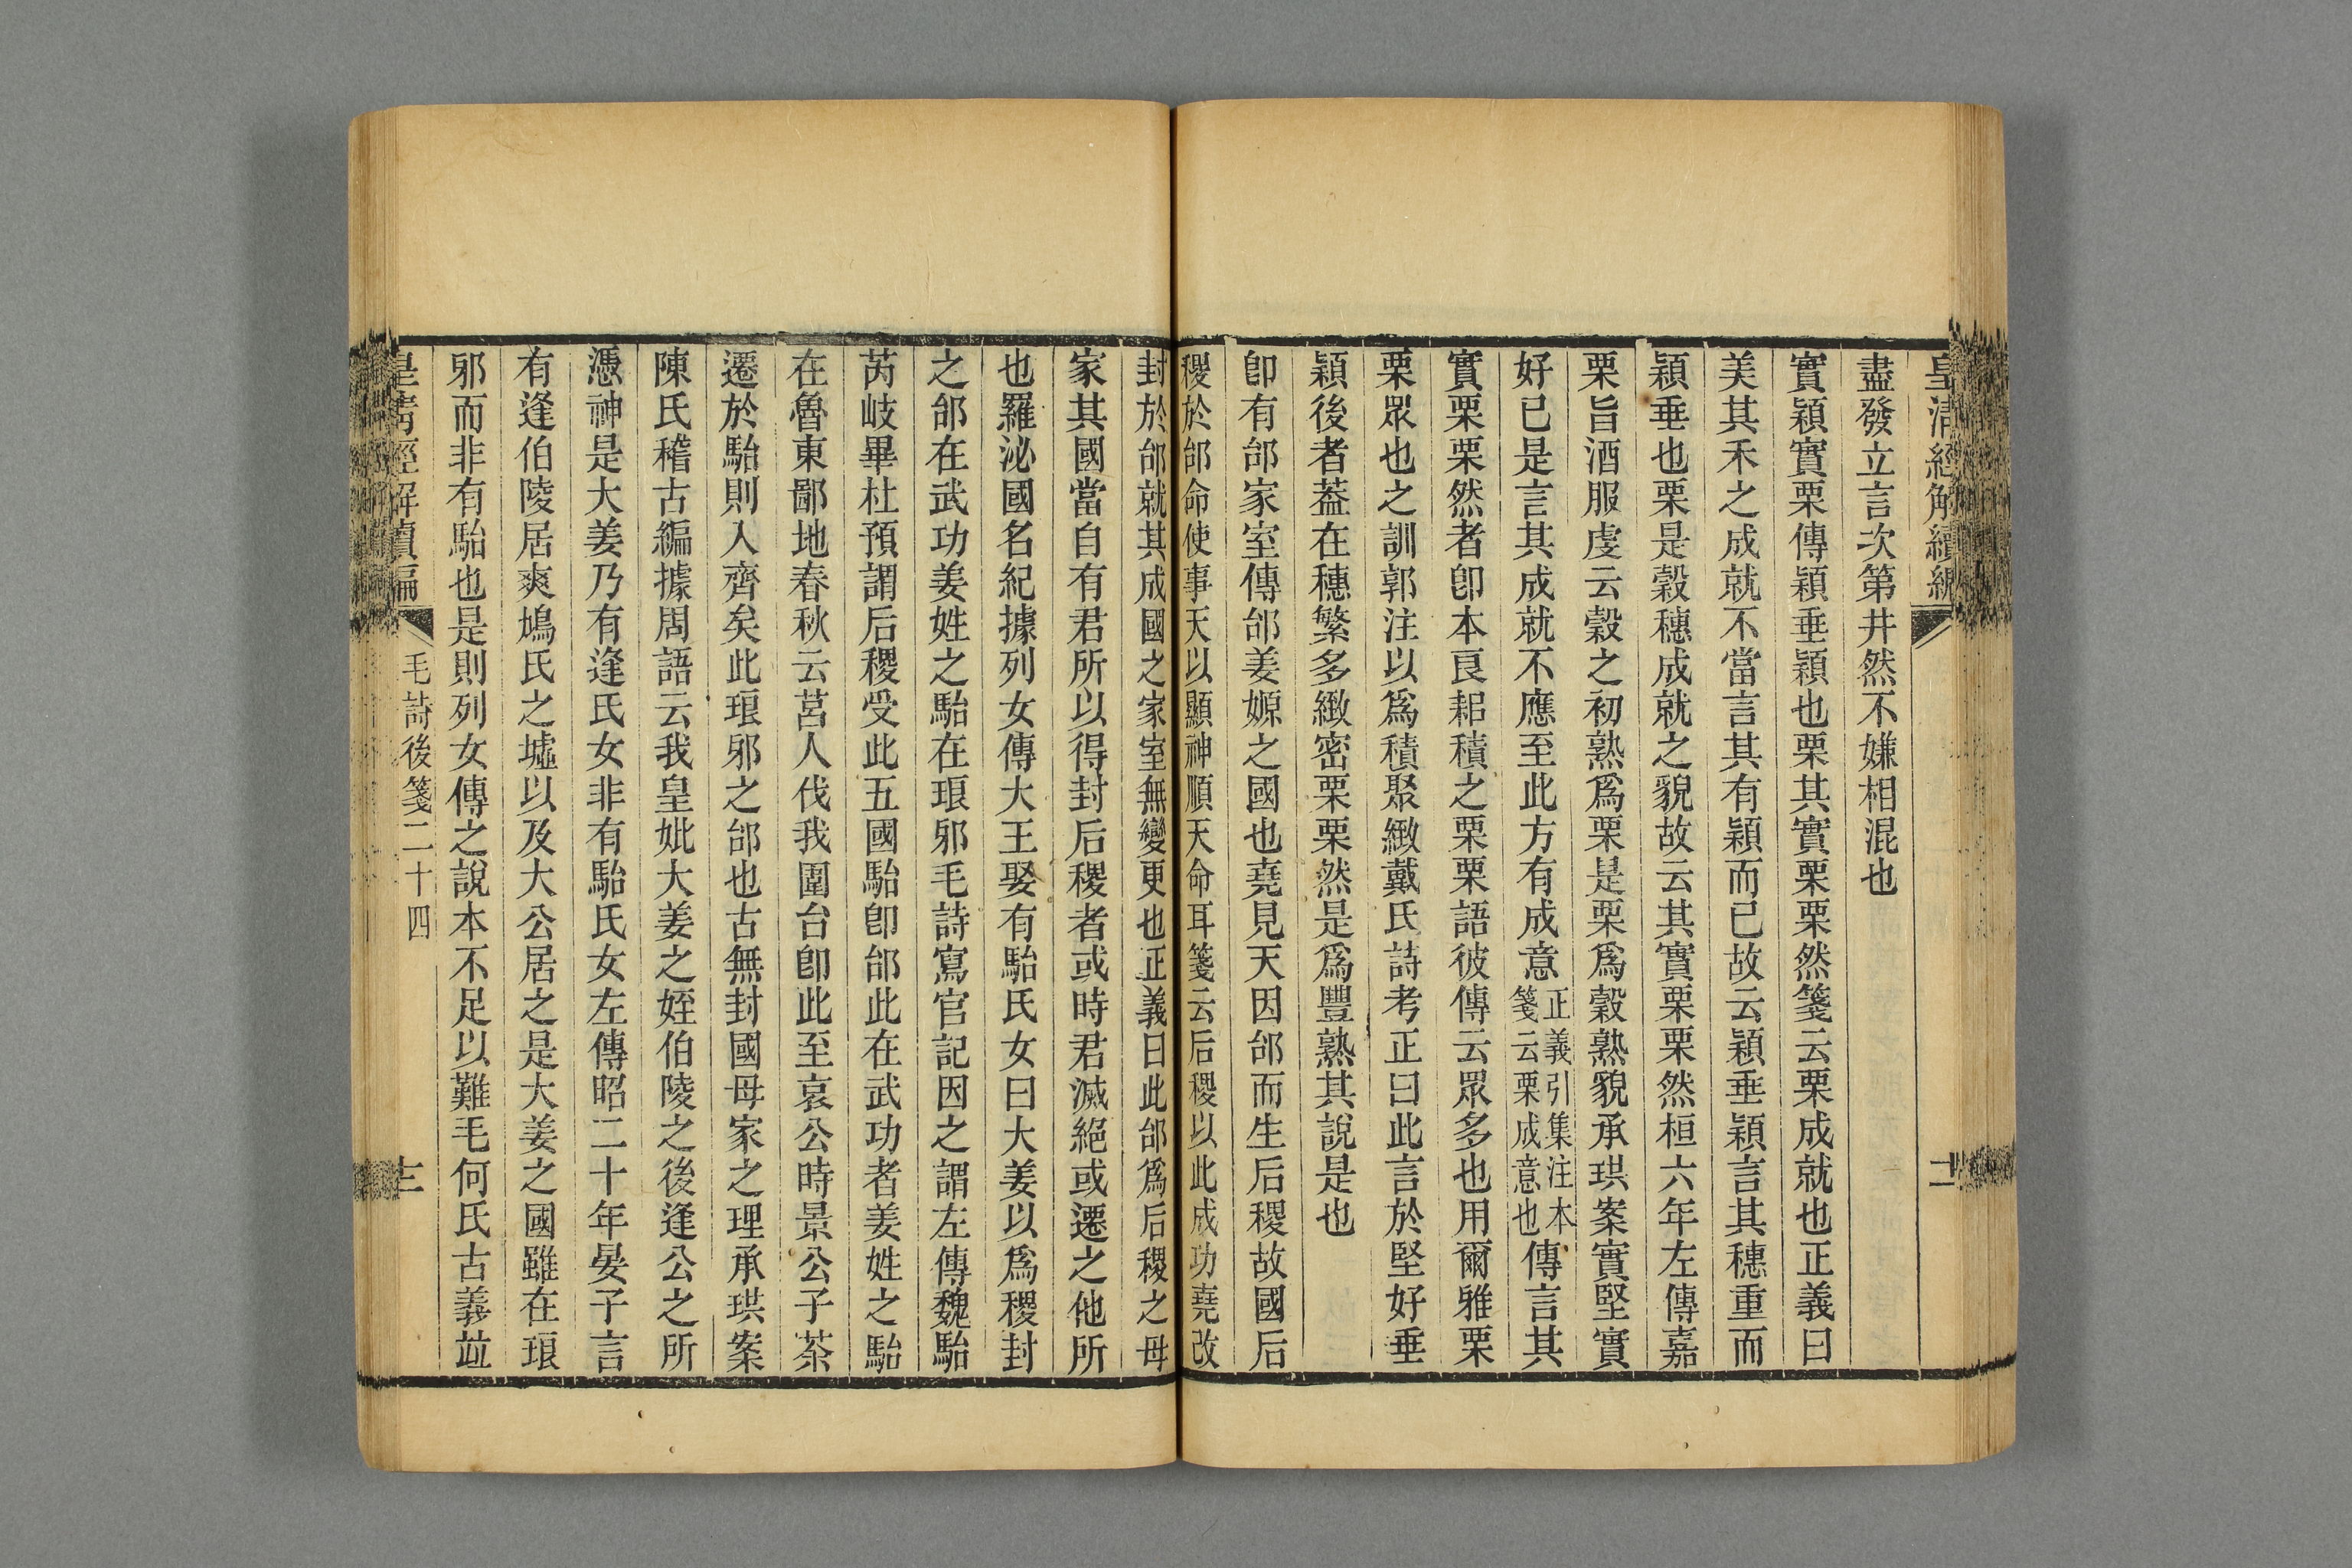 皇清經解續編
盡發立言次第井然不嫌相混也
實穎實栗傳穎垂穎也栗其實栗栗然箋云栗成就也正義曰
美其禾之成就不當言其有穎而已故云穎垂穎言其穗重而
穎垂也栗是穀穗成就之貌故云其實栗栗然桓六年左傳嘉
栗旨酒服虔云穀之初熟爲栗是栗爲穀熟貌承珙案實堅實
好已是言其成就不應至此方有成意正義引集注本箋云栗成意也傳言其
實栗栗然者卽本良耜積之栗栗語彼傳云眾多也用爾雅栗
栗眾也之訓郭注以爲積聚緻戴氏詩考正曰此言於堅好垂
穎後者葢在穗繁多緻密栗栗然是爲豐熟其說是也
卽有邰家室傳邰姜嫄之國也堯見天因邰而生后稷故國后
稷於邰命使事天以顯神順天命耳箋云后稷以此成功堯改
封於邰就其成國之家室無變更也正義曰此邰爲后稷之母
家其國當自有君所以得封后稷者或時君滅絕或遷之他所
也羅泌國名紀據列女傳大王娶有駘氏女曰大姜以爲稷封
之邰在武功姜姓之駘在琅邪毛詩寫官記因之謂左傳魏駘
芮岐畢杜預謂后稷受此五國駘卽邰此在武功者姜姓之駘
在魯東鄙地春秋云莒人伐我圍台卽此至哀公時景公子荼
遷於駘則入齊矣此琅邪之邰也古無封國母家之理承珙案
陳氏稽古編據周語云我皇妣大姜之姪伯陵之後逢公之所
憑神是大姜乃有逢氏女非有駘氏女左傳昭二十年晏子言
有逢伯陵居爽鳩氏之墟以及大公居之是大姜之國雖在琅
邪而非有駘也是則列女傳之說本不足以難毛何氏古義竝
皇清經解續編
毛詩後箋二十四